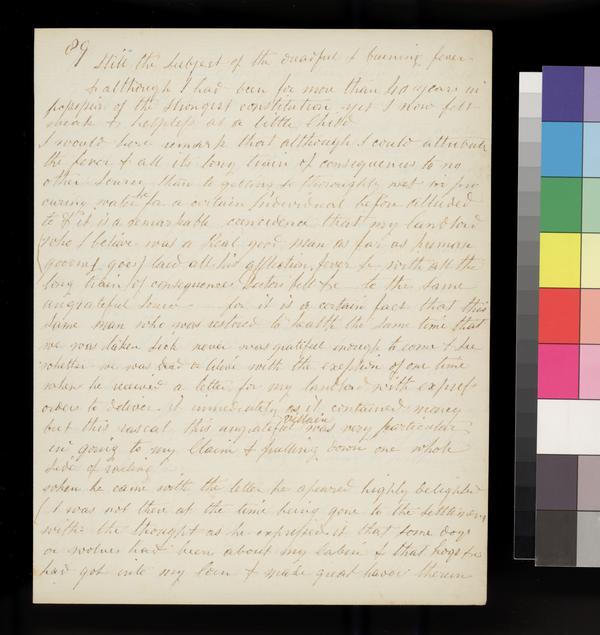 89
Still the subject of the dreadful & burning fever
& although I had been for more than 40 years in
possession of the strongest constitution yet I now felt
weak & helpless as a little Child
I would here remark that although I could attribute
the fever & all its long train of consequences to no
other source than to getting so thoroughly wet in pro
curing water for a certain Individual before alluded
to & it is a remarkable coincidence that my landlord
(who I believe was a real good man as far as human
goes) laid all his affliction fever &c with all the
long train of consequences Doctors bill &c to the same
ungrateful source for it is a certain fact that this
same man who was restored to health the same time that
we was taken sick never was grateful enough to come & see
whether we was dead or alive with the exeption of one time
when he received a letter for my landlord with express
orders to deliver it immediately as it contained money
but this rascal this ungrateful villain was very particular
in going to my Claim & pulling down one whole
side of railing
when he came with the letter he apeared highly delighted
(I was not then at the time being gone to the settlement
with the thought as he expressed it that some dogs
or wolves had been about my cabin & that hogs &c
had got into my Corn & made great havoc therein